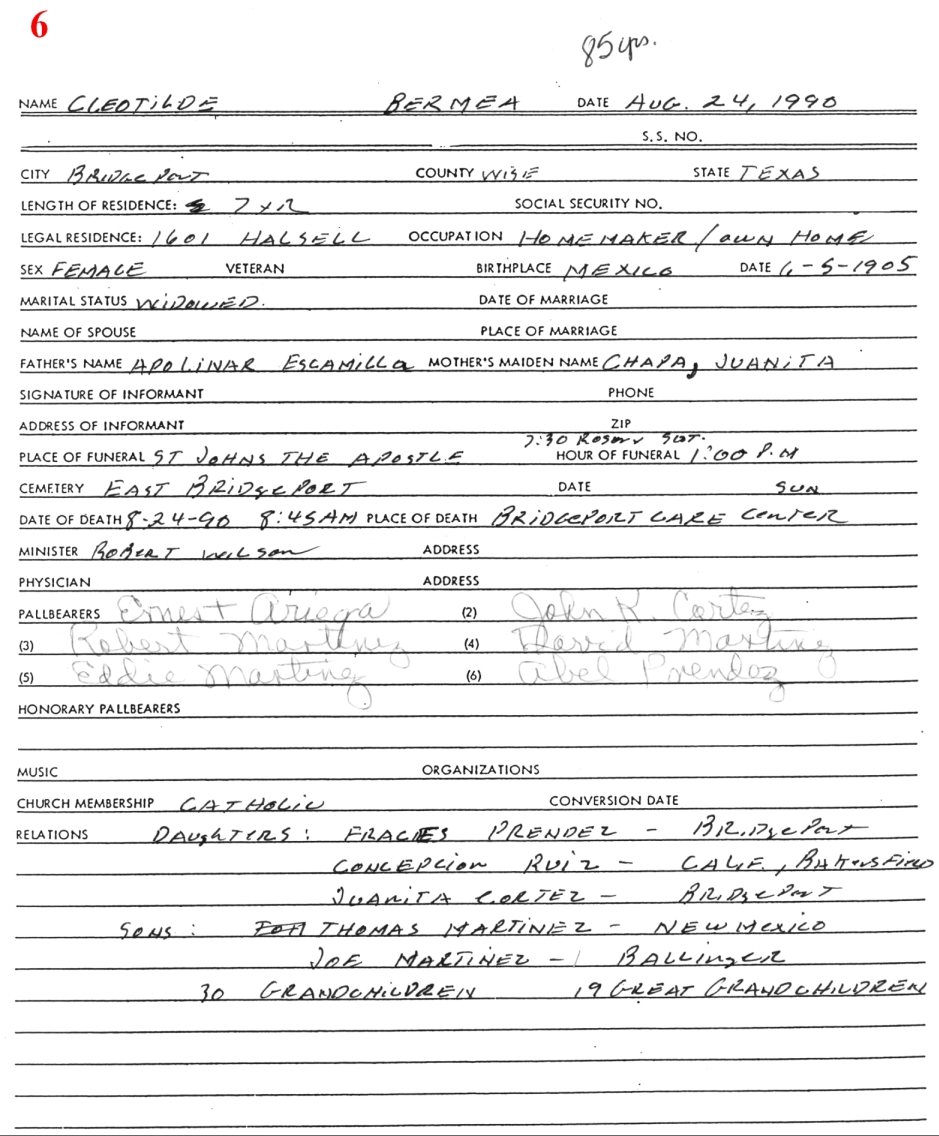 6
85 yrs.
NAME CLEOTILDE BERMEA DATE AUG. 24, 1990
S.S. NO.
CITY BRIDGEPORT COUNTY WISE STATE TEXAS
LENGTH OF RESIDENCE: 7 YR SOCIAL SECURITY NO.
LEGAL RESIDENCE: 1601 HALSELL OCCUPATION HOMEMAKER / OWN HOME
SEX FEMALE VETERAN BIRTHPLACE MEXICO DATE 6-5-1905
MARITAL STATUS WIDOWED. DATE OF MARRIAGE
NAME OF SPOUSE PLACE OF MARRIAGE
FATHER'S NAME APOLINAR ESCAMILLA MOTHER'S MAIDEN NAME CHAPA, JUANITA
SIGNATURE OF INFORMANT PHONE
ADDRESS OF INFORMANT ZIP
7:30 ROSARY SAT.
PLACE OF FUNERAL ST JOHNS THE APOSTLE HOUR OF FUNERAL 1:00 P.M
CEMETERY EAST BRIDGEPORT DATE SUN
DATE OF DEATH 8-24-90 8:45AM PLACE OF DEATH BRIDGEPORT CARE CENTER
MINISTER ROBERT WILSON ADDRESS
PHYSICIAN ADDRESS
PALLBEARERS Ernest Ariega (2) John K. Cortez
(3) Robert Martinez (4) David Martinez
(5) Eddie Martinez (6) Abel Prendez
HONORARY PALLBEARERS
MUSIC ORGANIZATIONS
CHURCH MEMBERSHIP CATHOLIC CONVERSION DATE
RELATIONS DAUGHTERS: FRACIES PRENDEZ - BRIDGEPORT
CONCEPCION RUIZ - CALIF., BAKERSFIELD
JUANITA CORTEZ - BRIDGEPORT
SONS: THOMAS MARTINEZ - NEW MEXICO
JOE MARTINEZ - BALLINGER
30 GRANDCHILDREN 19 GREAT GRANDCHILDREN